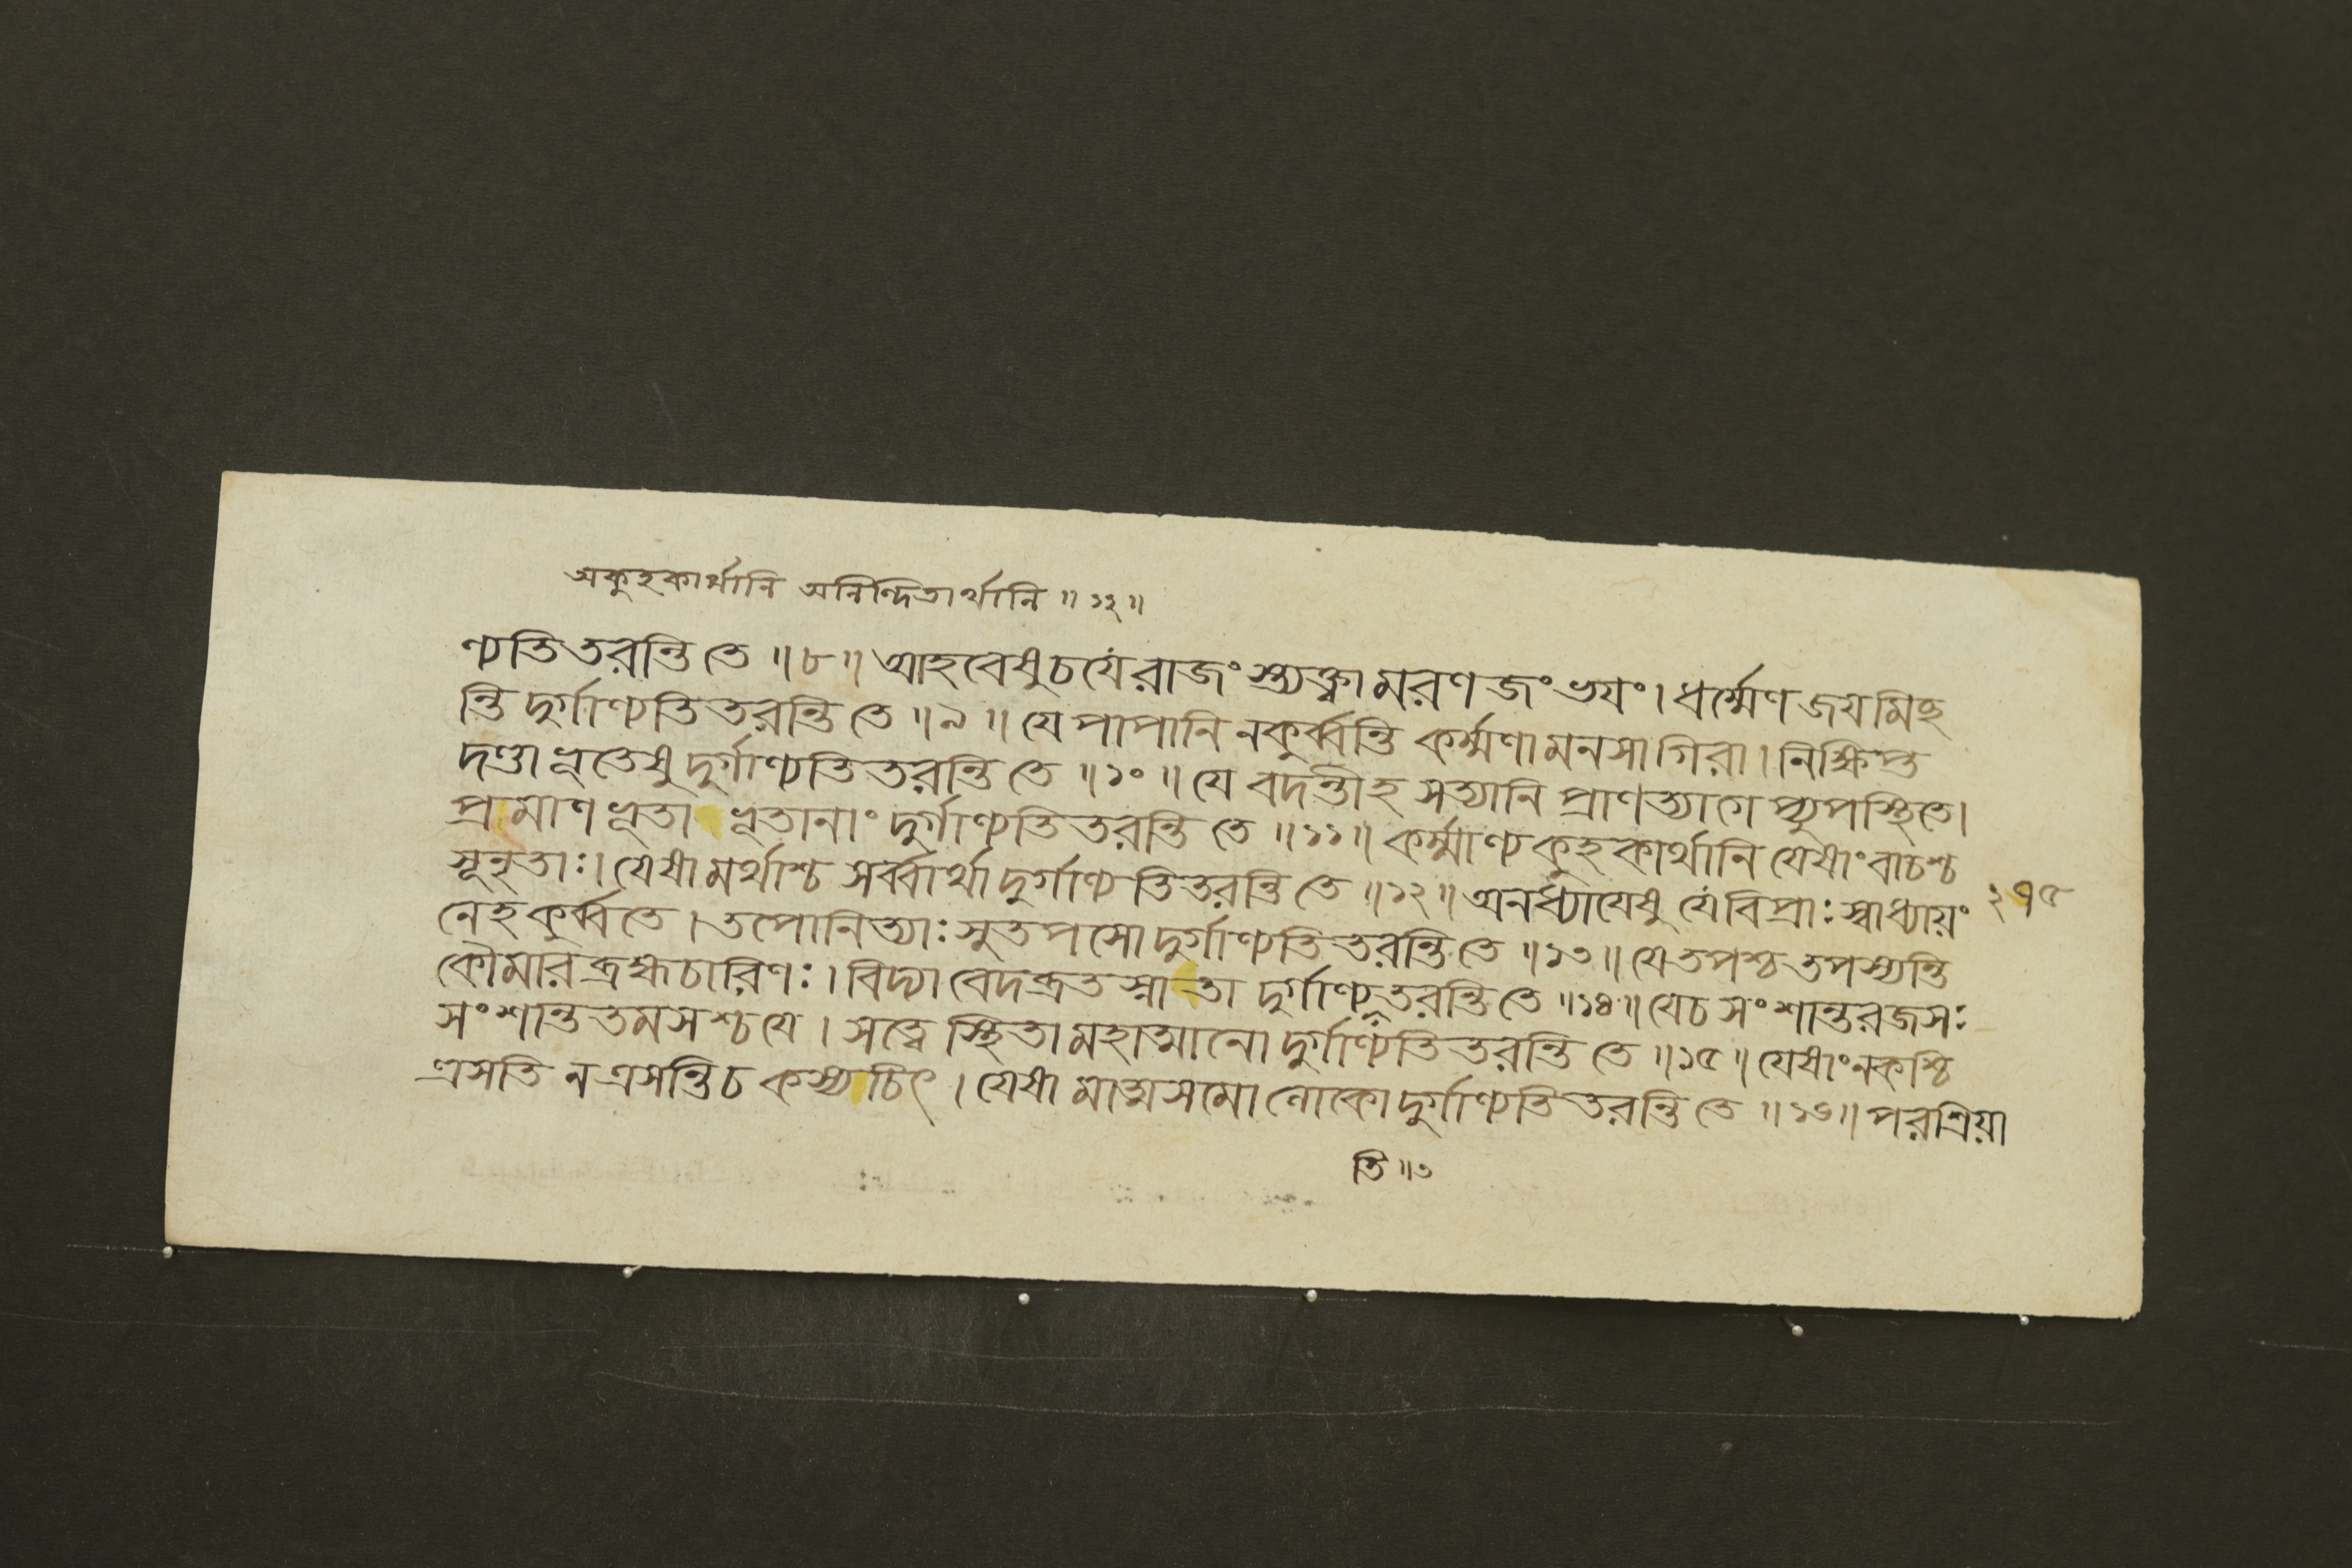 অকুহকার্থানি অনিন্দিতার্থানি ॥ ১২ ॥
ণ্যতিতরন্তি তে ॥ ৮ ॥ আহবেষুচ যে রাজং স্ত্যক্ত্বা মরণ জং ভয়ং । ধর্ম্মেণ জয়মিচ্ছ
ন্তি দুর্গাণ্যতিতরন্তি তে ॥ ৯ ॥ যে পাপানি নকুর্ব্বন্তি কর্ম্মণা মনসা গিরা । নিক্ষিপ্ত
দণ্ডা ভূতেষু দুর্গাণ্যতিতরন্তি তে ॥ ১০ ॥ যে বদন্তীহ সত্যানি প্রাণত্যাগে প্যুপস্থিতে ।
প্রমাণ ভূতা ভূতানাং দুর্গাণ্যতিতরন্তি তে ॥ ১১ ॥ কর্ম্মাণ্য কুহকার্থানি যেষাং বাচশ্চ
সূনৃতাঃ । যেষামর্থাশ্চ সর্ব্বার্থা দুর্গাণ্যতিতরন্তি তে ॥ ১২ ॥ অনধ্যায়েষু যে বিপ্রাঃ স্বাধ্যায়ং
২৭৫
নেহ কুর্ব্বতে । তপোনিত্যাঃ সুতপসো দুর্গাণ্যতিতরন্তি তে ॥ ১৩ ॥ যে তপশ্চ তপস্যন্তি
কৌমার ব্রহ্মচারিণঃ । বিদ্যা বেদব্রত স্নাতা দুর্গাণ্যতরন্তি তে ॥ ১৪ ॥ যেচ সংশান্তরজসঃ
সংশান্ততমসশ্চ যে । সত্ত্বে স্থিতা মহাত্মানো দুর্গাণ্যতিতরন্তি তে ॥ ১৫ ॥ যেষাং ন কশ্চি
ত্রসতি ন ত্রসন্তি চ কস্যচিৎ । যেষা মাত্মসমো লোকো দুর্গাণ্যতিতরন্তি তে ॥ ১৬ ॥ পরশ্রিয়া
তি ॥ ৩